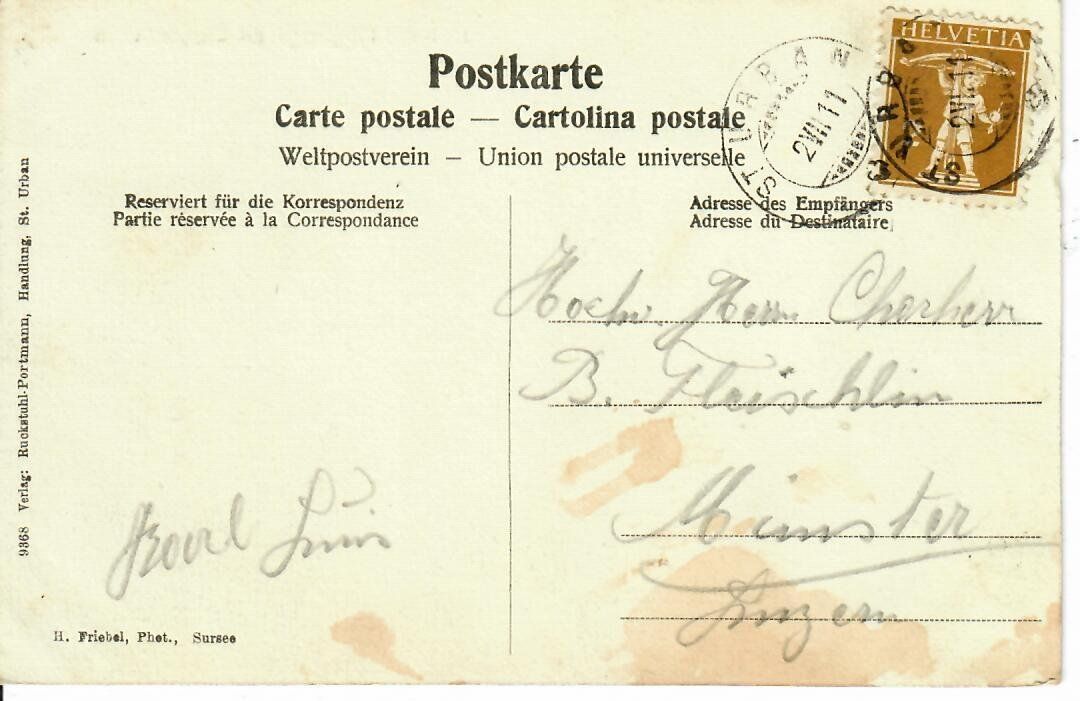 Postkarte
Carte postale — Cartolina postale
Weltpostverein – Union postale universelle
Reserviert für die Korrespondenz
Partie réservée à la Correspondance
Adresse des Empfängers
Adresse du Destinataire
HELVETIA
ST URBAN
2 VII 11
ST URBAN
2 VII 11
Hochw. Herrn Chorherr
B. Fleischlin
Münster
Luzern
9368 Verlag: Ruckstuhl-Portmann, Handlung, St. Urban
H. Friebel, Phot., Sursee